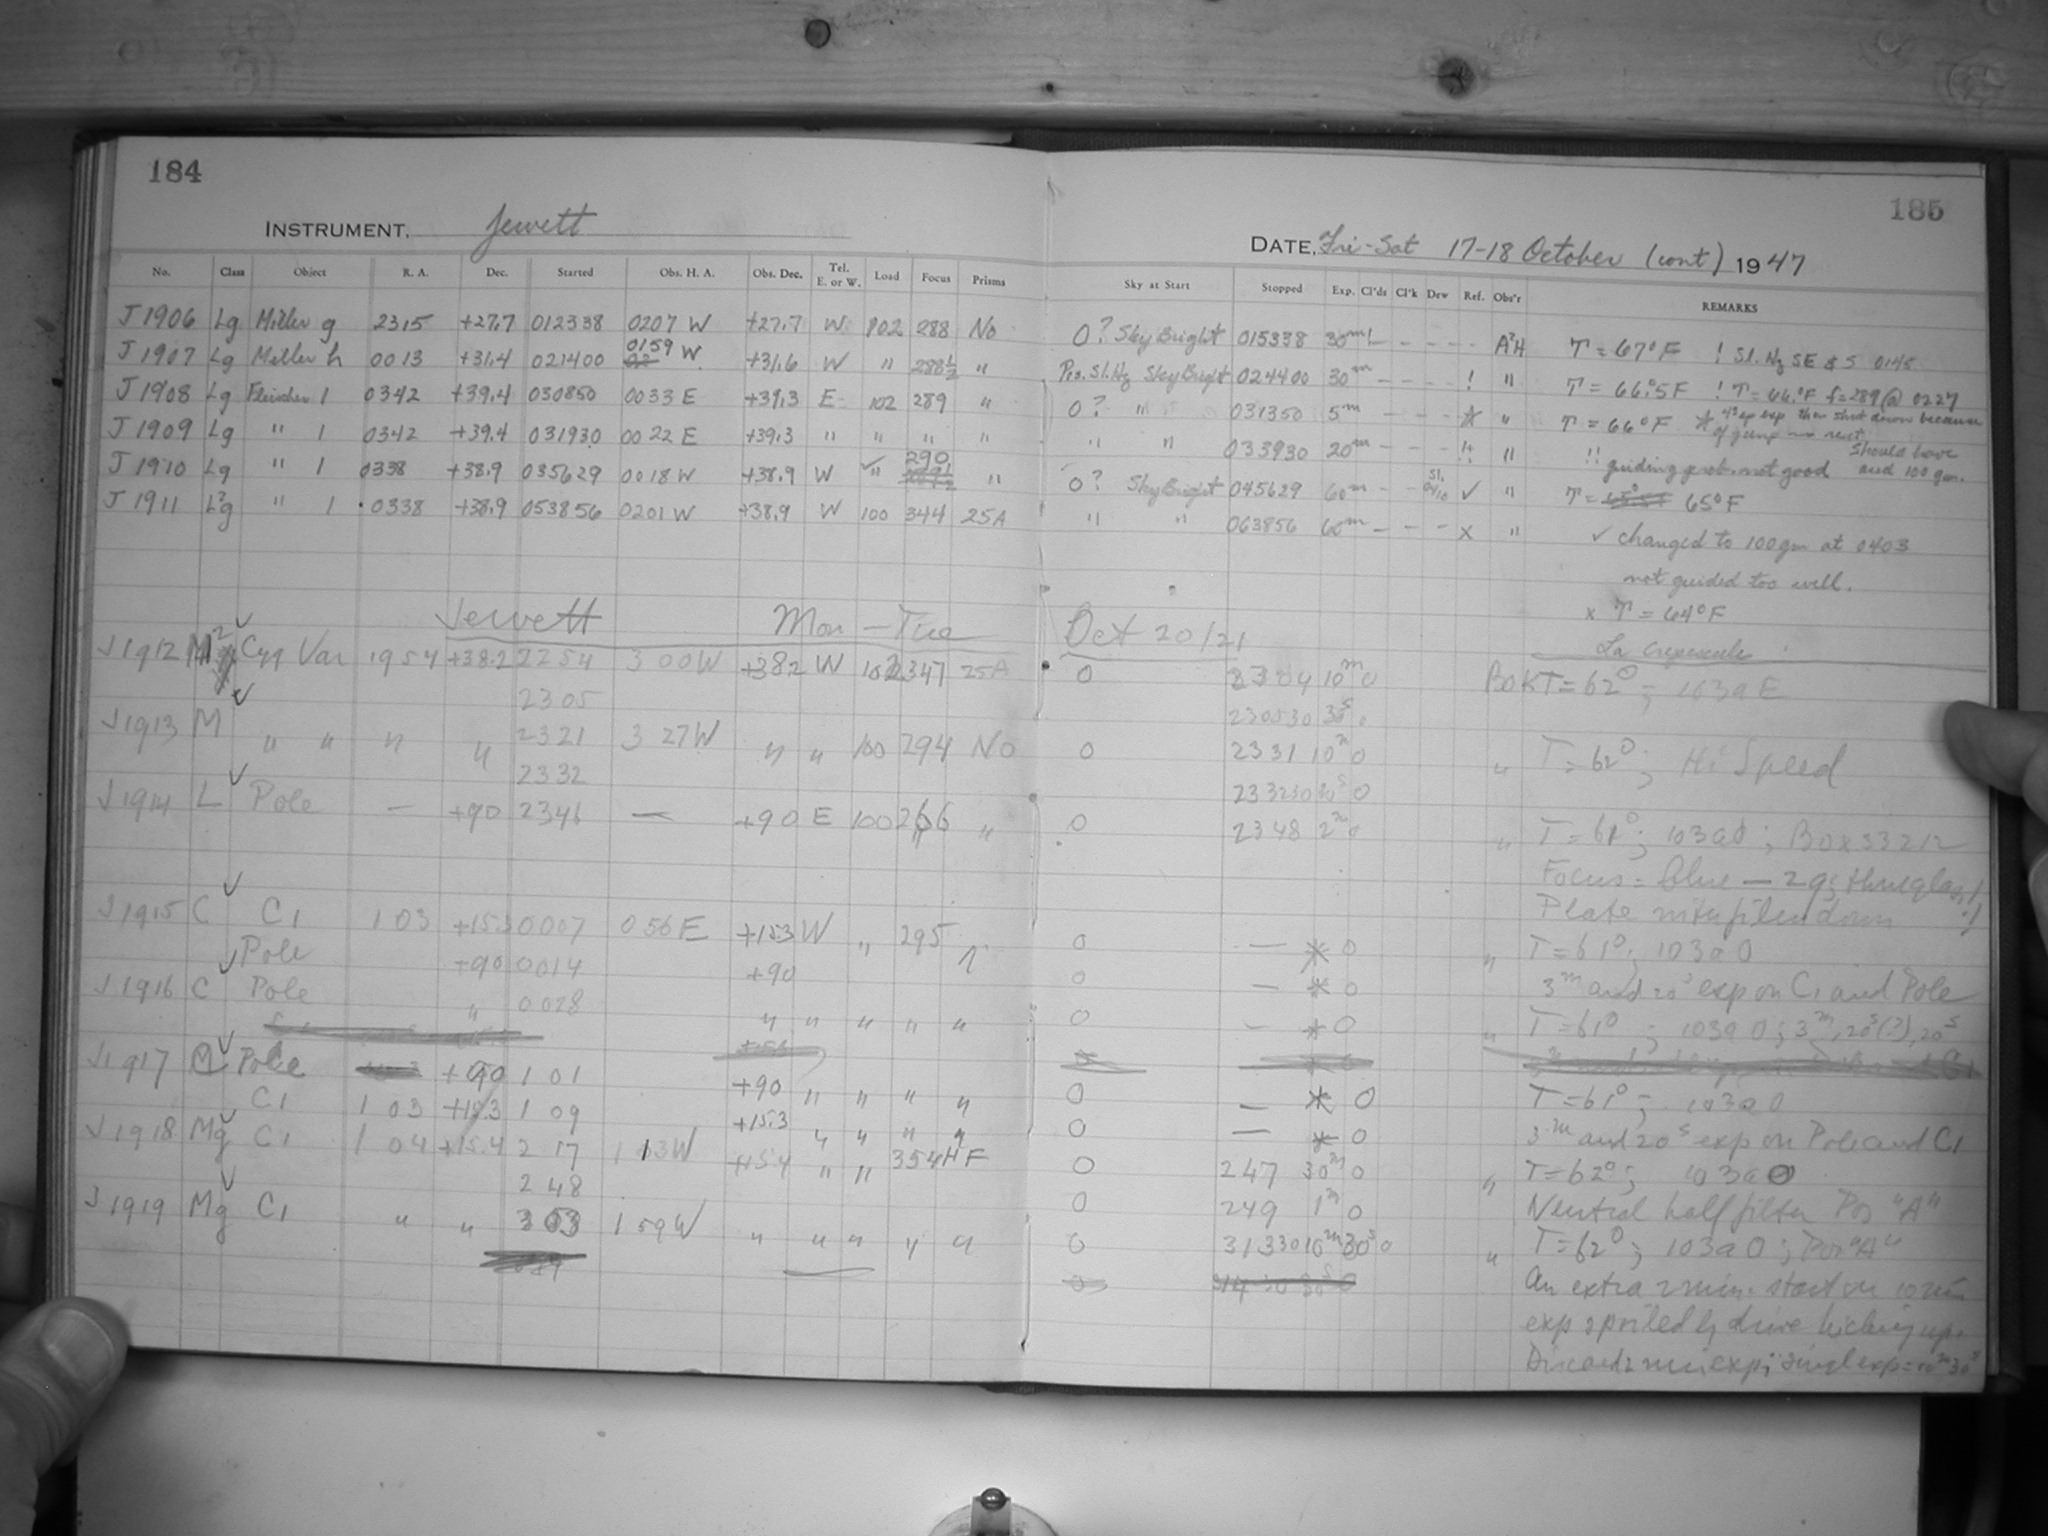 184
INSTRUMENT, Jewett
No. Class Object R. A. Dec. Started Obs. H. A. Obs. Dec. Tel. E. or W. Load Focus Prisms
J 1906 Lg Miller g 2315 +27.7 012338 0207 W +27.7 W 102 288 No
J 1907 Lg Miller h 0013 +31.4 021400 0159 W +31.6 W " 288½ "
J 1908 Lg Fleischer 1 0342 +39.4 030850 0033 E +39.3 E 102 289 "
J 1909 Lg " 1 0342 +39.4 031930 0022 E +39.3 " " " "
J 1910 Lg " 1 0338 +38.9 035629 0018 W +38.9 W ✓ " 290 "
J 1911 Lg " 1 0338 +38.9 053856 0201 W +38.9 W 100 344 25A
Jewett Mon - Tue
J1912 M Cyg Var 1954 +38.2 2254 3 00W +38.2 W 102 347 25A
2305
J1913 M " " " " 2321 3 27W " " 100 294 No
2332
J1914 L Pole — +90 2346 — +90 E 100 266 "
J1915 C C1 1 03 +15.3 0007 0 56 E +15.3 W " 295
Pole +90 0014 +90
J1916 C Pole " 0028 " " " " "
J1917 Pole +90 1 01 +90 " " " "
C1 1 03 +15.3 1 09 +15.3 " " " "
J1918 Mg C1 1 04 +15.4 2 17 1 13W +15.4 " " 354 HF
2 48
J1919 Mg C1 " " 3 03 1 59W " " " " "
185
DATE, Fri-Sat 17-18 October (cont) 1947
Sky at Start Stopped Exp. Cl'ds Cl'k Dew Ref. Obs'r REMARKS
0? Sky Bright 015338 30m! - - - - A²H T = 67°F ! Sl. Hz SE & S 0145
Pos. Sl. Hz Sky Bright 024400 30m - - - ! " T = 66.°5F ! T = 66.°F f=289 @ 0227
0? " 031350 5m - - - * " T = 66°F * exp then shut down because
of jump no rest
" " 033930 20m - - - !! " !! guiding prob. not good should have
used 100 gm.
0? Sky Bright 045629 60m - - Sl. ✓ " T = 65°F
" " 063856 60m - - - x " ✓ changed to 100gm at 0403
not guided too well.
x T = 64°F
Oct 20/21
La Crepescule
0 2304 10m 0 BOK T=62°; 103a E
230530 30s 0
0 2331 10m 0 " T=62°; Hi Speed
233230 30s 0
0 2348 2m 0 " T=61°; 103a0; Box 53212
Focus = blue — 29; thruglass!
Plate into film down!
0 — * 0 " T=61°; 103a0
0 — * 0 3m and 20s exp on C1 and Pole
0 — * 0 " T=61°; 103a0; 3m, 20s(?), 20s
0 — * 0 T=61°; 103a0
0 — * 0 3m and 20s exp on Pole and C1
0 247 30m 0 " T=62°; 103a0
0 249 1m 0 Neutral half filter Pos "A"
0 31330 10m30s 0 " T=62°; 103a0; Pos "A"
An extra 2 min. start on 10 min
exp spoiled by drive kicking up.
Discard 2 min exp; single exp = 10m30s